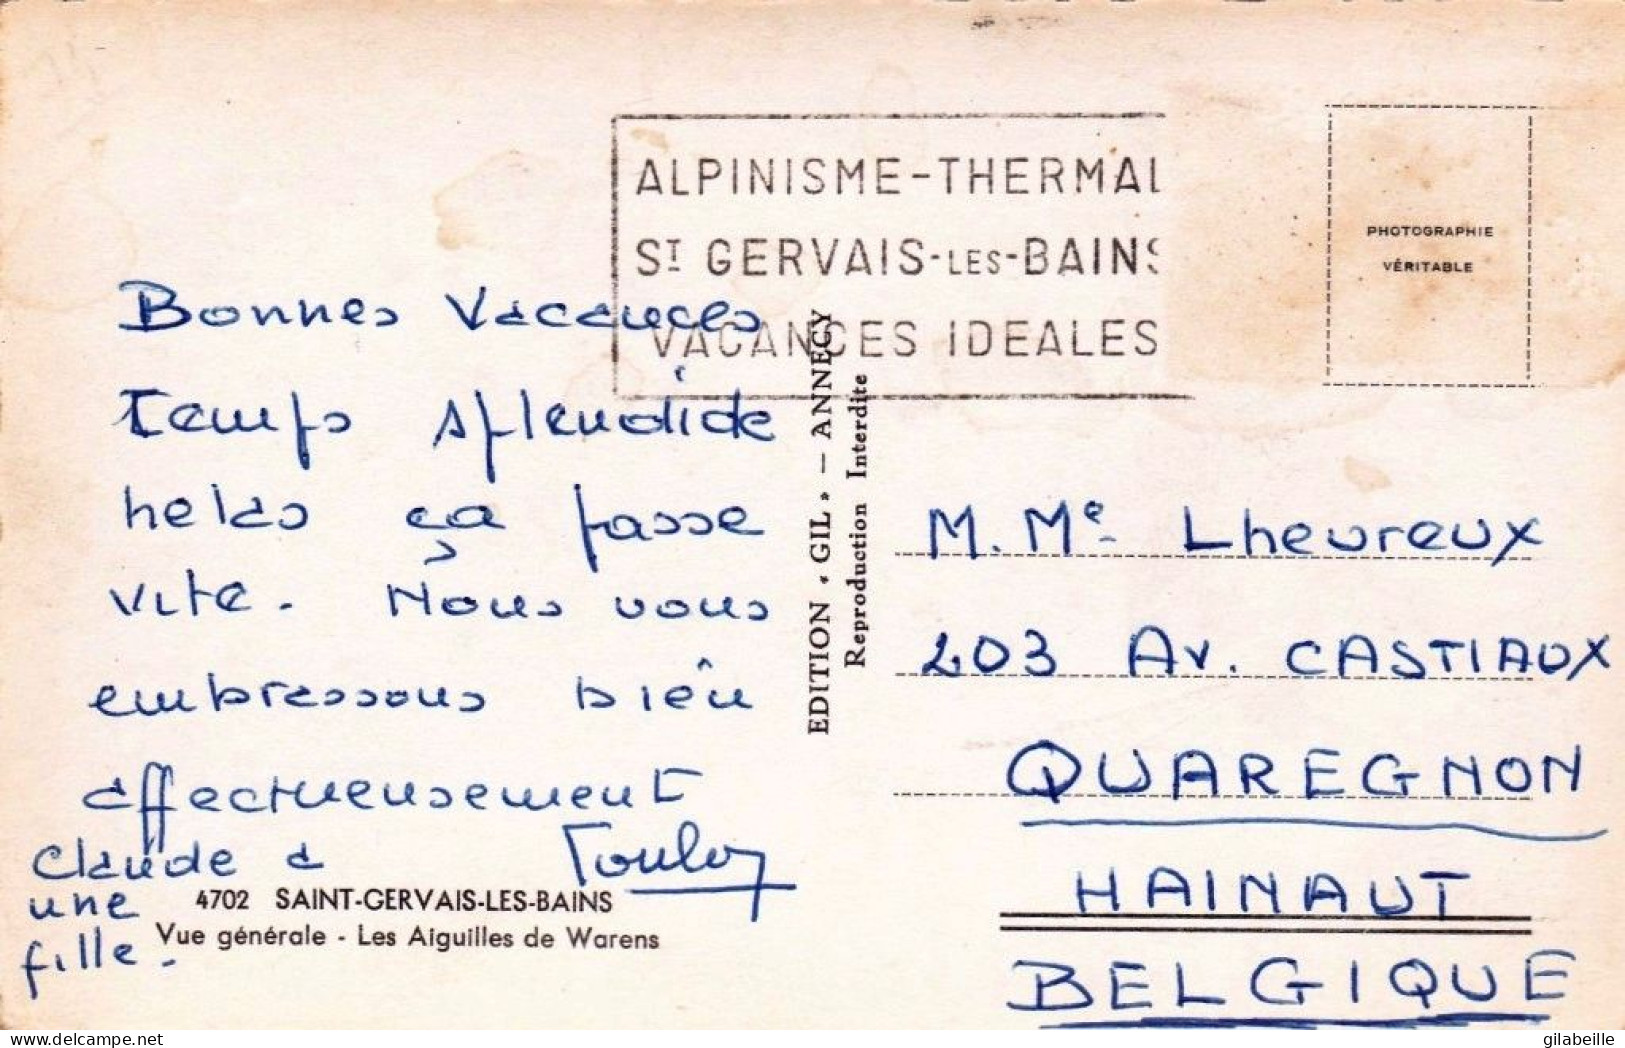 ALPINISME-THERMAL
ST GERVAIS-LES-BAINS
VACANCES IDEALES
PHOTOGRAPHIE
VÉRITABLE
Bonnes Vacances
Temps splendide
helas ça passe
vite. Nous vous
embrassons bien
affectueusement
Claude a
une
fille.
4702 SAINT-GERVAIS-LES-BAINS
Vue générale - Les Aiguilles de Warens
EDITION « GIL » — ANNECY
Reproduction Interdite
M. Me Lheureux
203 Av. CASTIAUX
QUAREGNON
HAINAUT
BELGIQUE
gilabeille